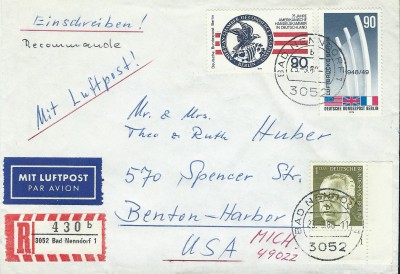 Einschreiben!
Recommandé
Mit Luftpost!
75 JAHRE
AMERIKANISCHE
HANDELSKAMMER
IN DEUTSCHLAND
90
90
1948/49
DEUTSCHE BUNDESPOST BERLIN
BAD NENNDORF
b
3052
Mr. & Mrs.
Theo & Ruth Huber
570 Spencer Street
Benton-Harbor
MICH
USA
49022
MIT LUFTPOST
PAR AVION
R
430 b
3052 Bad Nenndorf 1
BAD NENNDORF
3052